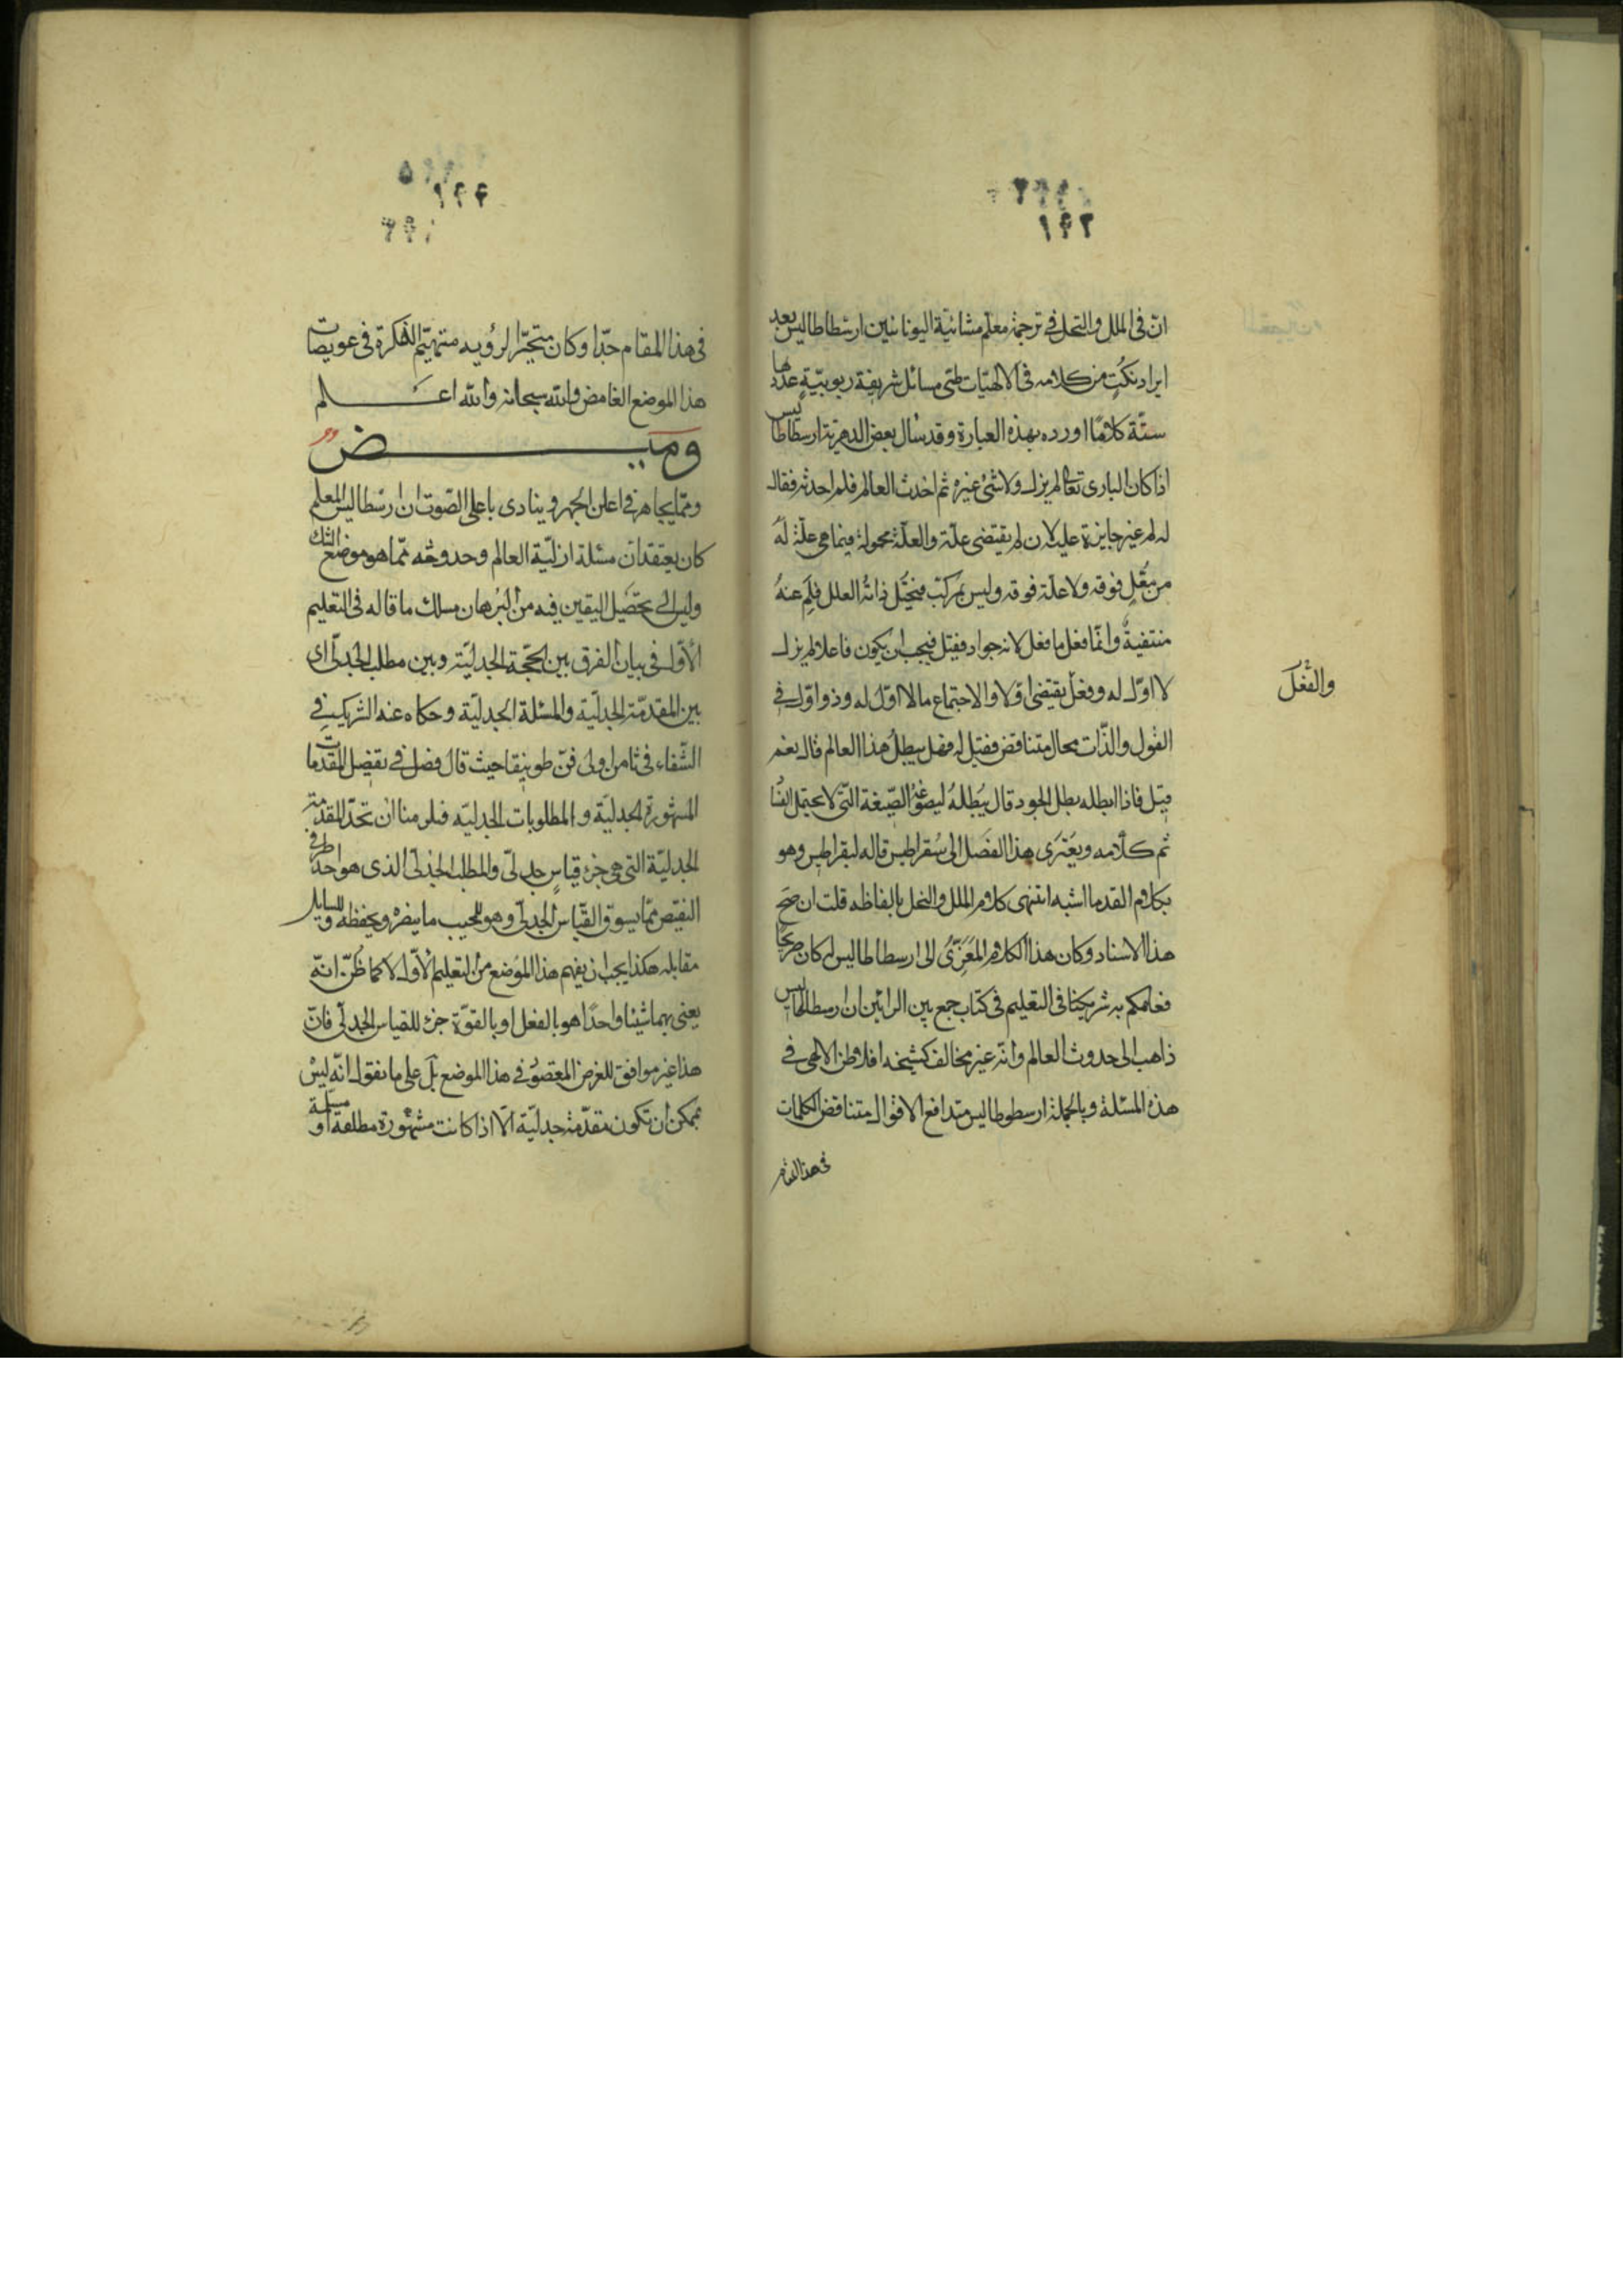 ١٩٢
ان فى الملل والنحل فى ترجمة معلم مشائية اليونانيين ارسطاطاليس بعد
ايراد نكت من كلامه فى الالهيات طى مسائل شريفة ربوبيّة عدها
ستة كلامًا اورده بهذه العبارة وقد سال بعض الدهرية ارسطاطاليس
اذا كان البارى تعالى لم يزل ولا شىء غيره ثم احدث العالم فلم احدثه فقال
له لم غير جايزة عليه لان لم يقتضى علة والعلة محمولة فيما هى علة له
من معل فوقه ولا علة فوقه وليس بمركب فتحمل ذاته العلل فلم عنه
منتفية وانما فعل ما فعل لانه جواد فقيل فيجب ان يكون فاعلا لم يزل
لا اول له وفعل يقتضى اولا والاجتماع ما لا اول له وذو اول فى
والفعل
القول والذات محال متناقض فقيل له فهل يبطل هذا العالم قال نعم
قيل فاذا ابطله بطل الجود قال يبطله ليصوغه الصيغة التى لا يحتمل الفنا
تم كلامه ويعترى هذا الفصل الى سقراطيس قاله لبقراطيس وهو
بكلام القدما اشبه انتهى كلام الملل والنحل بالفاظه قلت ان صح
هذا الاسناد وكان هذا الكلام المعزى الى ارسطاطاليس له كان صريحا
فما حكم به شريكنا فى التعليم فى كتاب جمع بين الرائين ان ارسطاطاليس
ذاهب الى حدوث العالم وانه غير مخالف كشيخه افلاطن الالهى فى
هذه المسئلة وبالجملة ارسطوطاليس متدافع الاقوال متناقض الكلمات
فى هذا المقام
فى هذا المقام جدا وكان متحير الروية متهيم الفكرة فى عويصات
هذا الموضع الغامض والله سبحانه والله اعلم
وميض
ومما يجاهر فى اعلن الجهر وينادى باعلى الصوت ان ارسطاليس المعلم
كان يعتقد ان مسئلة ازلية العالم وحدوثه مما هو موضع الشك
وليس الى تحصيل اليقين فيه من البرهان مسلك ما قاله فى التعليم
الاول فى بيان الفرق بين الحجة الجدلية وبين مطلب الجدلى اى
بين المقدمة الجدلية والمسئلة الجدلية وحكاه عنه الشريك فى
الشفاء فى ثامن اولى فن طوبيقا حيث قال فصل فى تفصيل المقدمات
المشهورة الجدلية والمطلوبات الجدلية فلرمنا ان نحد المقدمة
الجدلية التى هى جزء قياس جدلى والمطلب الجدلى الذى هو احد طرفى
النقيض مما يسوق القياس الجدلى وهو للمجيب ما ينصره ويحفظه وللسايل
مقابله هكذا يجب ان يفهم هذا الموضع من التعليم الاول لا كما ظن انه
يعنى بهما شيئا واحدًا هو بالفعل او بالقوة جزء للقياس الجدلى فان
هذا غير موافق للغرض المقصود فى هذا الموضع بل على ما نقول انه ليس
يمكن ان تكون مقدمة جدلية الا اذا كانت مشهورة مطلقة او